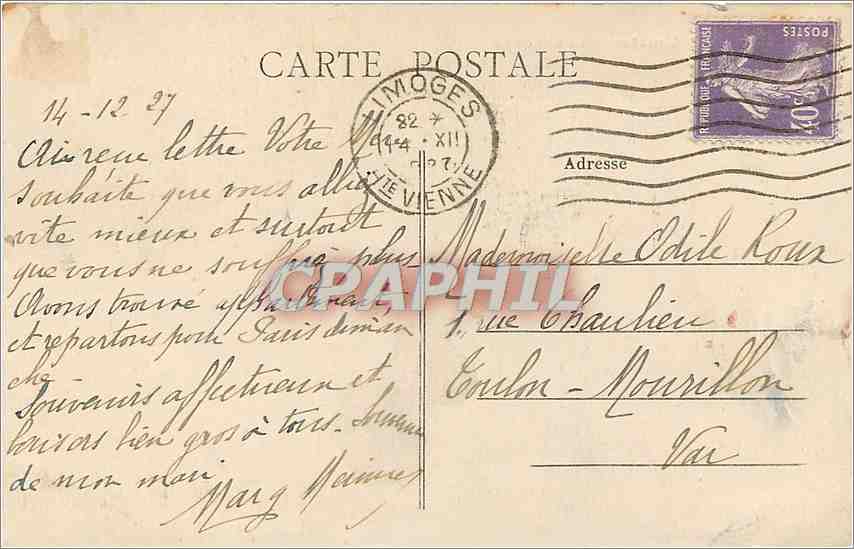 CARTE POSTALE
RÉPUBLIQUE FRANÇAISE
POSTES
40c
LIMOGES
Hte VIENNE
XII
Adresse
14-12-27
Ai reçu lettre Votre
souhaite que vous alliez
vite mieux et surtout
que vous ne souffriez plus
Avons trouvé appartement,
et repartons pour Paris diman
che
Souvenirs affectueux et
baisers bien gros à tous
de mon mari
Marg
Mademoiselle Odile Roux
1, rue Chaulieu
Toulon - Mourillon
Var
CPAPHIL